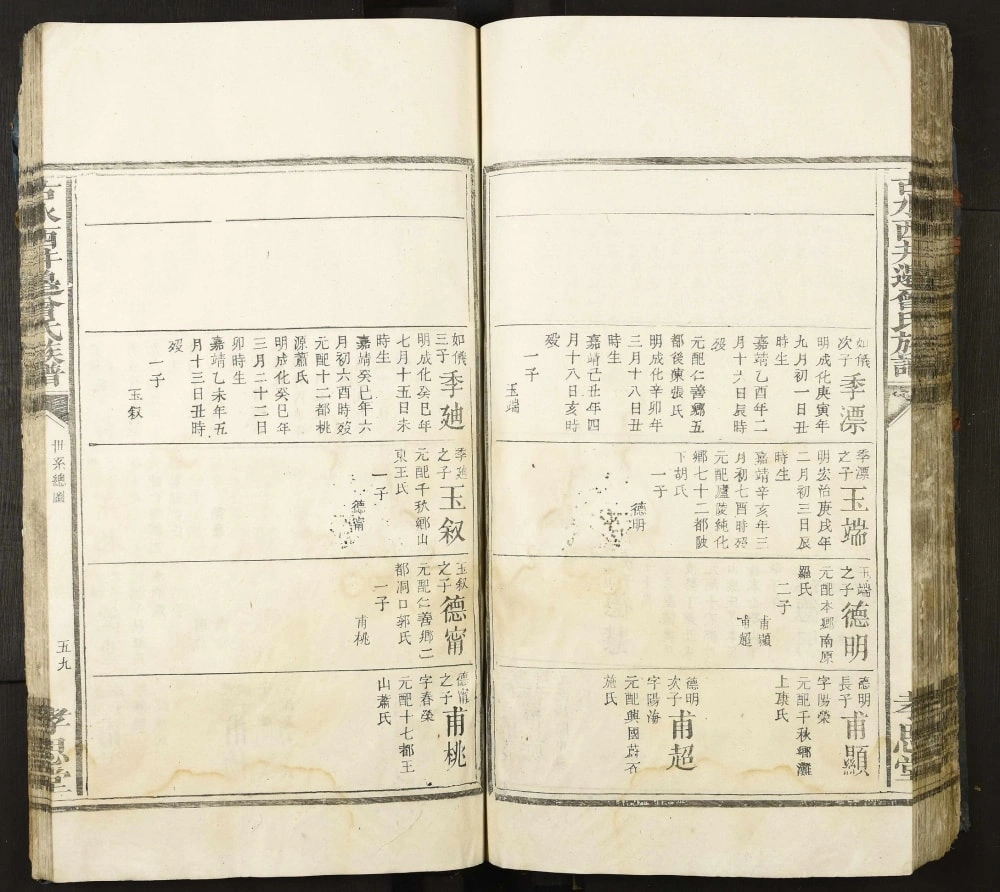 吉水西井邊曾氏族譜
孝思堂
如儀
次子
季漂
明成化庚寅年
九月初一日丑
時生
嘉靖乙酉年二
月十六日辰時
歿
元配仁善鄉五
都後陳張氏
明成化辛卯年
三月十八日丑
時生
嘉靖己丑年四
月十八日亥時
歿
一子
玉端
季漂
之子
玉端
明宏治庚戌年
二月初三日辰
時生
嘉靖辛亥年三
月初七酉時歿
元配廬陵純化
鄉七十二都陂
下胡氏
一子
德明
玉端
之子
德明
元配本鄉南原
羅氏
二子
甫顯
甫超
德明
長子
甫顯
字陽榮
元配千秋鄉灘
上康氏
德明
次子
甫超
字陽海
元配興國
施氏
如儀
三子
季廸
明成化癸巳年
七月十五日未
時生
嘉靖癸巳年六
月初六酉時歿
元配十二都桃
源蕭氏
明成化癸巳年
三月二十二日
卯時生
嘉靖乙未年五
月十三日丑時
歿
一子
玉叙
季廸
之子
玉叙
元配千秋鄉山
東王氏
一子
德甯
玉叙
之子
德甯
元配仁善鄉二
都洞口郭氏
一子
甫桃
德甯
之子
甫桃
字春榮
元配十七都王
山蕭氏
吉水西井邊曾氏族譜
世系總圖
五九
孝思堂